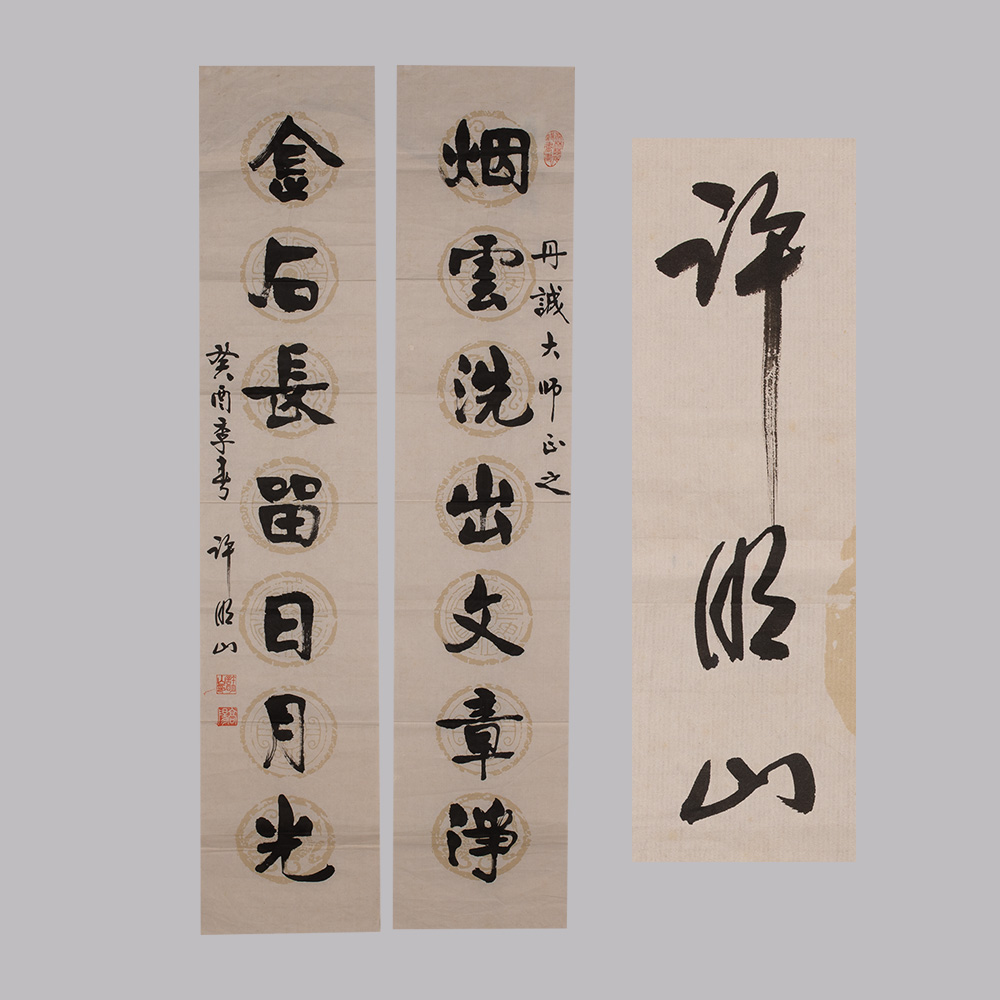 烟雲洗出文章淨
丹誠大师正之
金石長留日月光
癸酉季春 许明山
许明山